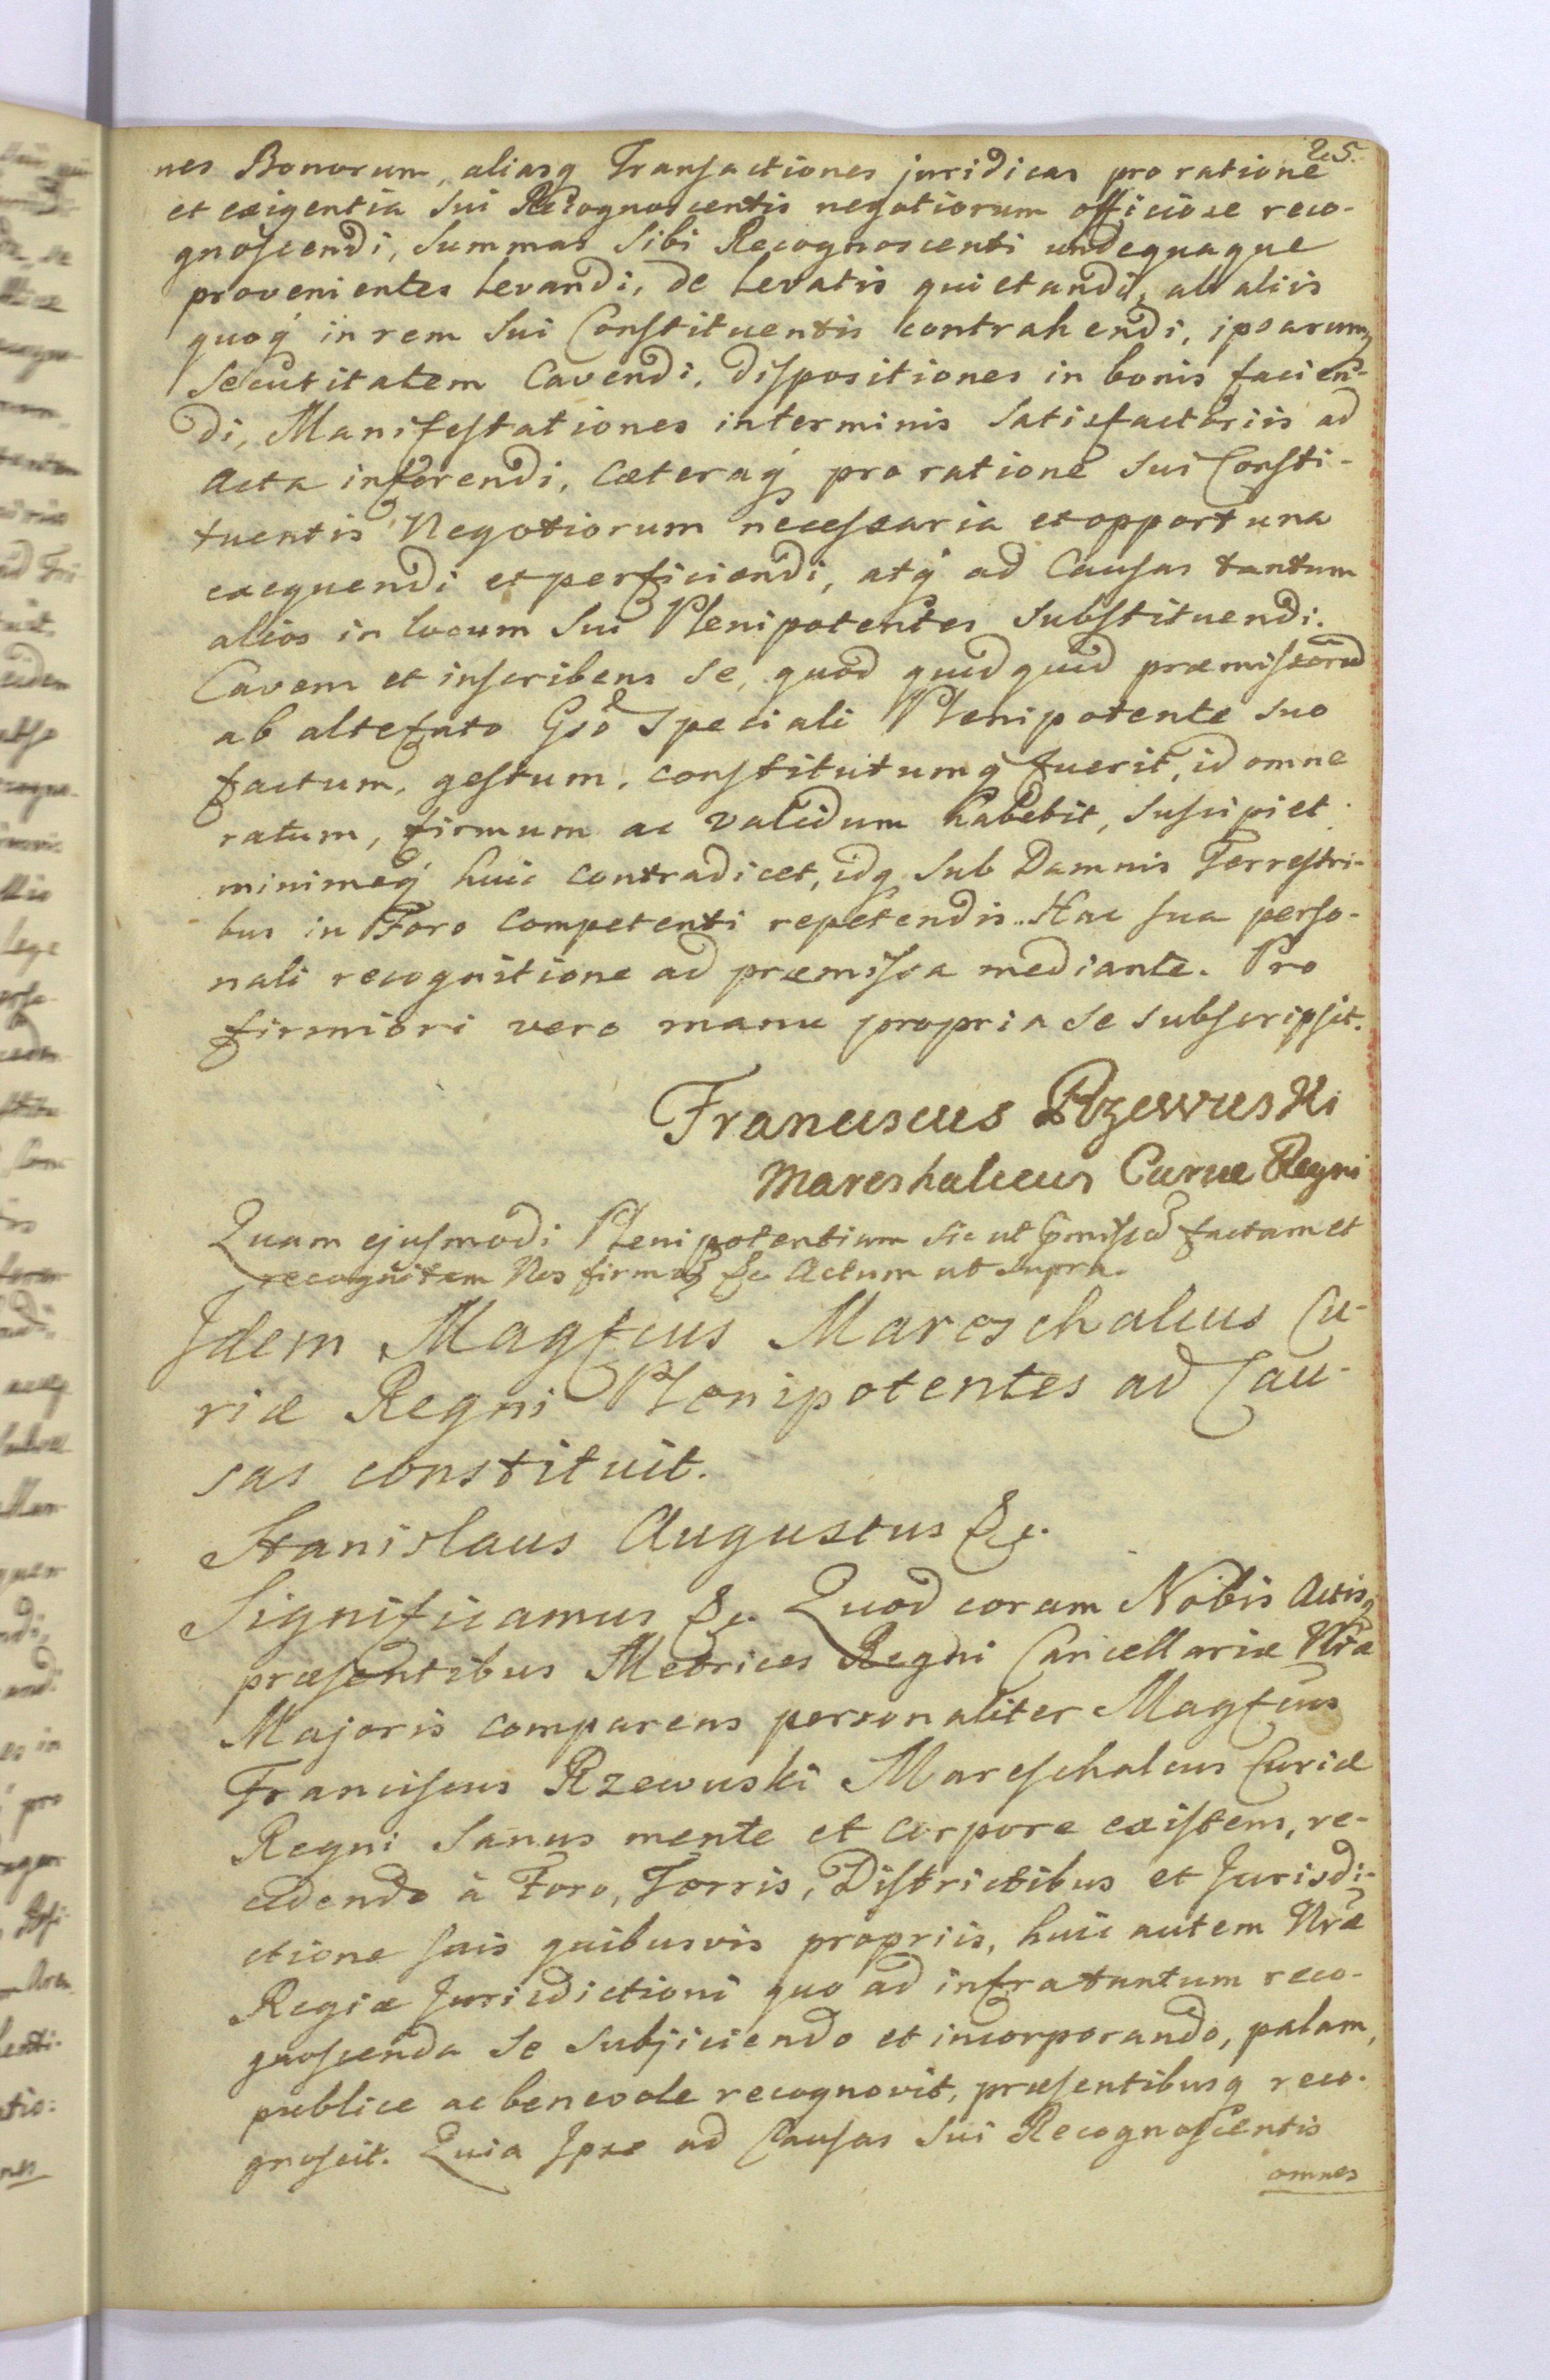 25.
nes Bonorum, aliasq Transactiones juridicas pro ratione
et exigentia Sui Recognoscentis negotiorum officiose reco-
gnoscendi, Summas Sibi Recognoscenti undequaque
provenientes levandi, de levatis quietandi, ab aliis
quoq́ in rem Sui Constituentis contrahendi, ipsarumq
Securitatem Cavendi, dispositiones in bonis facien-
di, Manifestationes in terminis Satisfactoriis ad
Acta inferendi, Cæteraq́ pro ratione Sui Consti-
tuentis Negotiorum necessaria et opportuna
exequendi et perficiendi, atq́ ad Causas tantum
alios in locum Sui Plenipotentes Substituendi.
Cavens et inscribens Se, quod quidquid præmissorũ
ab altefato Gso Speciali Plenipotente Suo
factum, gestum, constitutumq fuerit, id omne
ratum, firmum ac validum habebit, Suscipiet
minimeq́ huic contradicet, idq Sub Damnis Terrestri-
bus in Foro Competenti repetendis. Hac sua perso-
nali recognitione ad præmissa mediante. Pro
firmiori vero manu propria Se subscripsit.
Franciscus Rzewuski
Mareshalcus Curiæ Regni
Quam ejusmodi Plenipotentiam sic ut factam et
recognitam Nos &c. Actum ut supra.
Idem Magfcus Mareschalcus Cu-
riæ Regni Plenipotentes ad Cau-
sas constituit.
Stanislaus Augustus &c.
Significamus &c. Quod coram Nobis Actisq
præsentibus Metrices Regni Cancellariæ Nræ
Majoris comparens personaliter Magfcus
Franciscus Rzewuski Mareschalcus Curiæ
Regni Sanus mente et corpore existens, re-
cedendo à Foro, Terris, Districtibus et Jurisdi-
ctione suis quibusvis propriis, huic autem Nræ
Regiæ Jurisdictioni quo ad infra tantum reco-
gnoscenda Se Subjiciendo et incorporando, palam,
publice ac benevole recognovit, præsentibusq reco-
gnoscit. Quia Ipse ad Causas Sui Recognoscentis
omnes